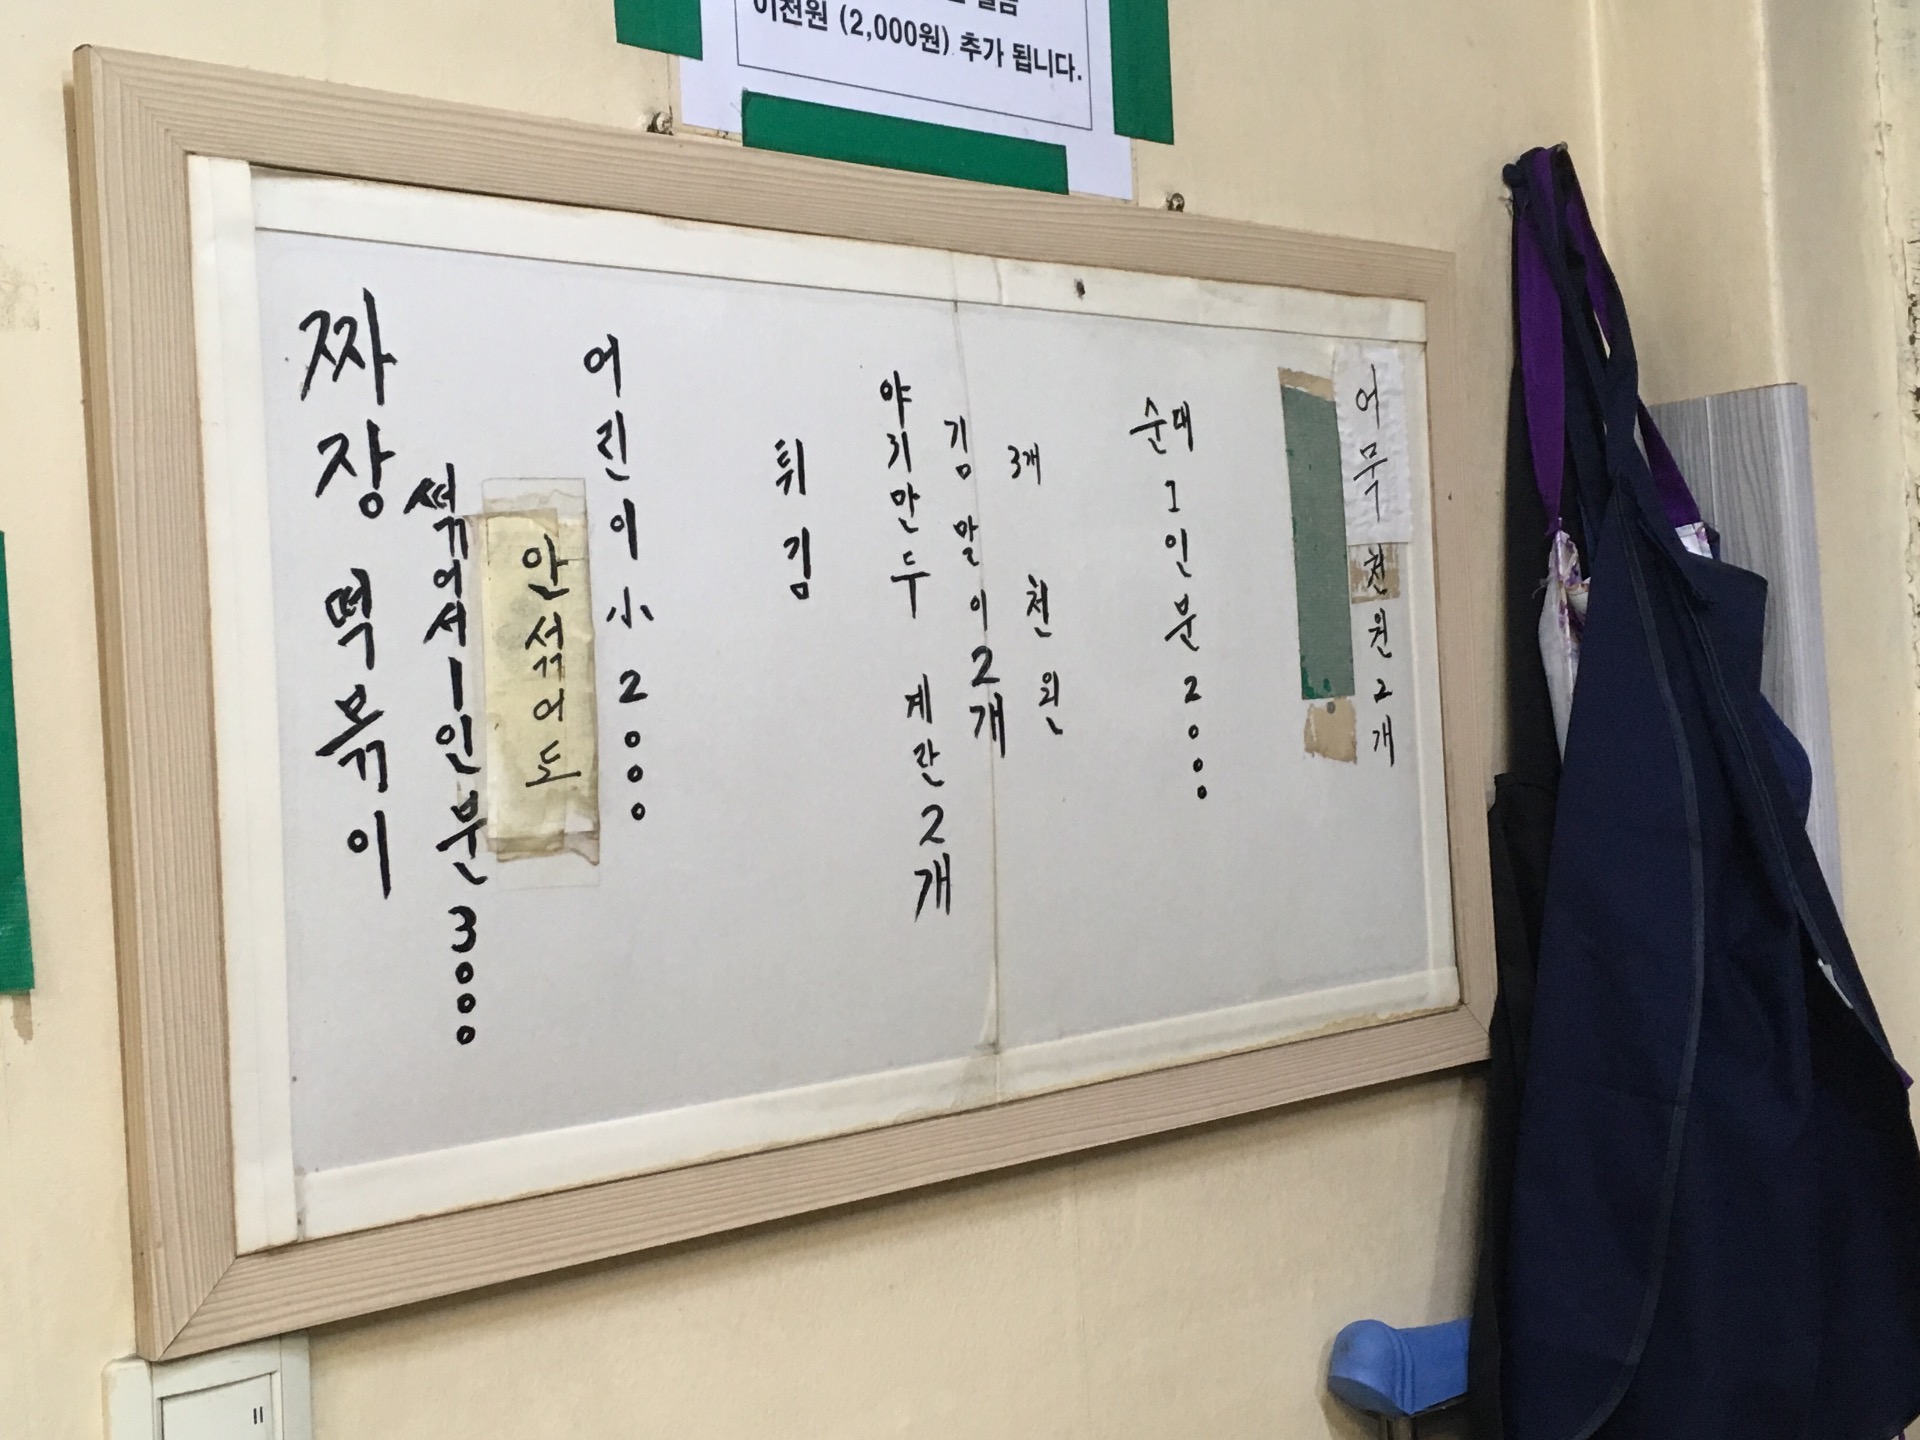 이천원 (2,000원) 추가 됩니다.
짜장 떡볶이
섞어서 1인분 3000
안 섞어도
어린이 小 2000
튀김
야기만두
계란 2개
김말이 2개
3개 천원
순대 1인분 2000
어묵 천원 2개